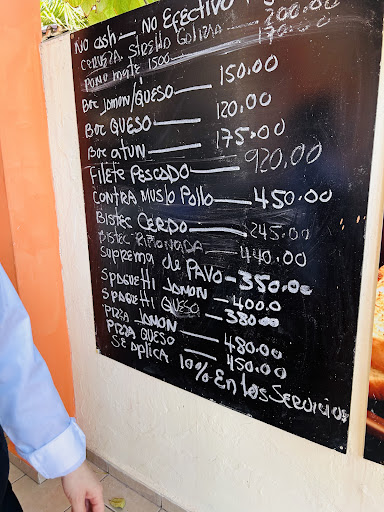 No cash - No Efectivo
Cerveza Strella Galizia - 200.00
Pomo malte 1500 - 170.00
Boc Jamon/Queso - 150.00
Boc Queso - 120.00
Boc atun - 175.00
Filete Pescado - 920.00
Contra Muslo Pollo - 450.00
Bistec Cerdo - 245.00
Bistec Riñonada - 440.00
Suprema de Pavo - 350.00
Spaguetti Jamon - 400.0
Spaguetti Queso - 380.00
Pizza Jamon - 480.00
Pizza Queso - 450.00
Se aplica 10% En los Servicios